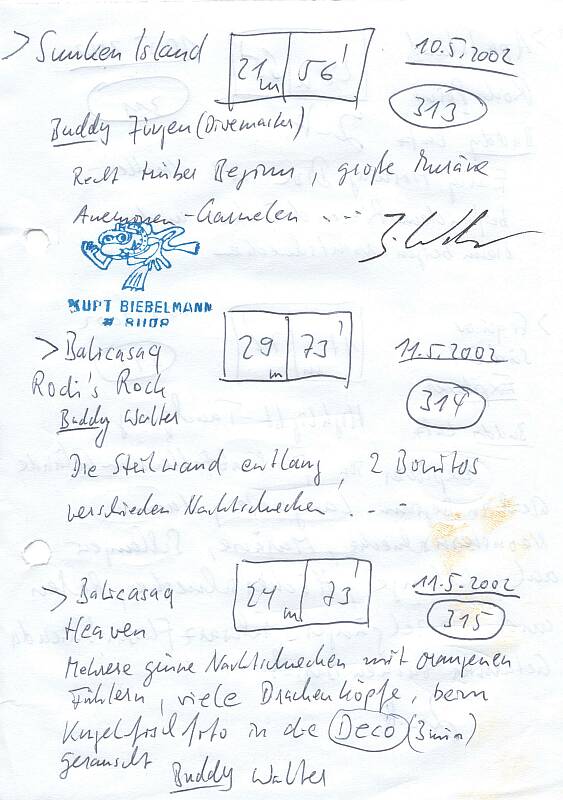 > Sunken Island 21m 56' 10.5.2002
313
Buddy Jürgen (Divemaster)
Recht trüber Beginn, große Muräne
Anemonen-Garnelen ....
KURT BIEBELMANN
> Balicasag 29m 73' 11.5.2002
Rodi's Rock 314
Buddy Walter
Die Steilwand entlang, 2 Bonitos
verschieden Nachtschnecken ...
> Balicasag 24m 73' 11.5.2002
Heaven 315
Mehrere grüne Nachtschnecken mit orangenen
Fühlern, viele Drachenköpfe, beim
Kugelfischfoto in die Deco (3min)
gerauscht Buddy Walter